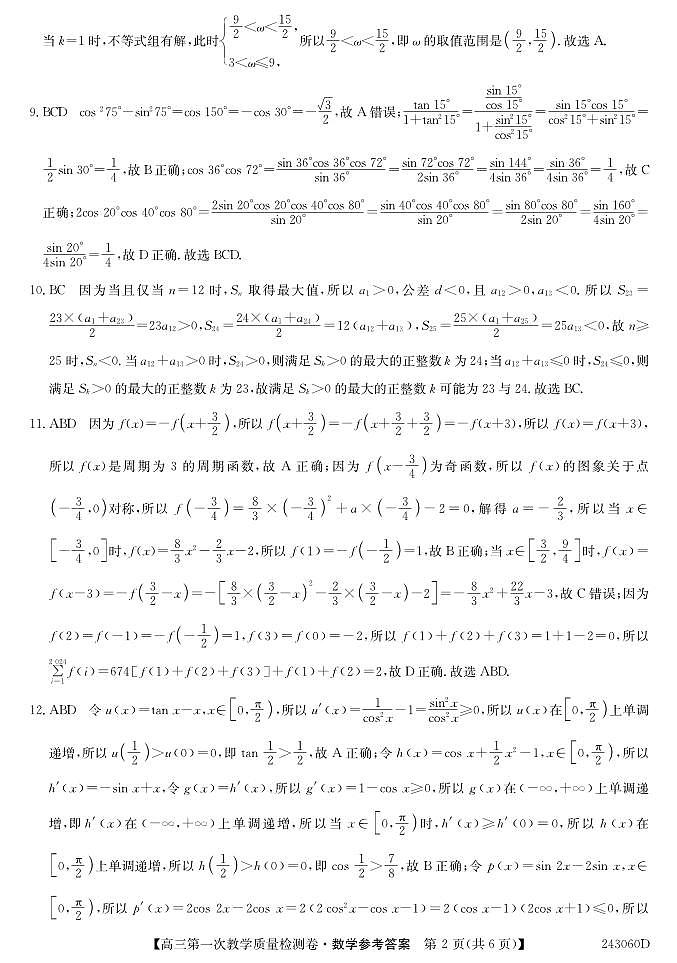 当 k=1 时,不等式组有解,此时{9/2<ω<15/2, 3<ω≤9, 所以 9/2<ω<15/2,即 ω 的取值范围是(9/2,15/2).故选 A.
9. BCD cos²75°-sin²75°=cos 150°=-cos 30°=-√3/2,故 A 错误;tan 15°/(1+tan²15°)=(sin 15°/cos 15°)/(1+sin²15°/cos²15°)=sin 15°cos 15°/(cos²15°+sin²15°)=
1/2 sin 30°=1/4,故 B 正确;cos 36°cos 72°=sin 36°cos 36°cos 72°/sin 36°=sin 72°cos 72°/2sin 36°=sin 144°/4sin 36°=sin 36°/4sin 36°=1/4,故 C
正确;2cos 20°cos 40°cos 80°=2sin 20°cos 20°cos 40°cos 80°/sin 20°=sin 40°cos 40°cos 80°/sin 20°=sin 80°cos 80°/2sin 20°=sin 160°/4sin 20°=
sin 20°/4sin 20°=1/4,故 D 正确.故选 BCD.
10. BC 因为当且仅当 n=12 时,Sₙ 取得最大值,所以 a₁>0,公差 d<0,且 a₁₂>0,a₁₃<0.所以 S₂₃=
23×(a₁+a₂₃)/2=23a₁₂>0,S₂₄=24×(a₁+a₂₄)/2=12(a₁₂+a₁₃),S₂₅=25×(a₁+a₂₅)/2=25a₁₃<0,故 n≥
25 时,Sₙ<0.当 a₁₂+a₁₃>0 时,S₂₄>0,则满足 Sₖ>0 的最大的正整数 k 为 24;当 a₁₂+a₁₃≤0 时,S₂₄≤0,则
满足 Sₖ>0 的最大的正整数 k 为 23,故满足 Sₖ>0 的最大的正整数 k 可能为 23 与 24.故选 BC.
11. ABD 因为 f(x)=-f(x+3/2),所以 f(x+3/2)=-f(x+3/2+3/2)=-f(x+3),所以 f(x)=f(x+3),
所以 f(x)是周期为 3 的周期函数,故 A 正确;因为 f(x-3/4)为奇函数,所以 f(x)的图象关于点
(-3/4,0)对称,所以 f(-3/4)=8/3×(-3/4)²+a×(-3/4)-2=0,解得 a=-2/3,所以当 x∈
[-3/4,0]时,f(x)=8/3x²-2/3x-2,所以 f(1)=-f(-1/2)=1,故 B 正确;当 x∈[3/2,9/4]时,f(x)=
f(x-3)=-f(3/2-x)=-[8/3×(3/2-x)²-2/3×(3/2-x)-2]=-8/3x²+22/3x-3,故 C 错误;因为
f(2)=f(-1)=-f(-1/2)=1,f(3)=f(0)=-2,所以 f(1)+f(2)+f(3)=1+1-2=0,所以
2 024∑i=1 f(i)=674[f(1)+f(2)+f(3)]+f(1)+f(2)=2,故 D 正确.故选 ABD.
12. ABD 令 u(x)=tan x-x,x∈[0,π/2),所以 u′(x)=1/cos²x-1=sin²x/cos²x≥0,所以 u(x)在[0,π/2)上单调
递增,所以 u(1/2)>u(0)=0,即 tan 1/2>1/2,故 A 正确;令 h(x)=cos x+1/2x²-1,x∈[0,π/2),所以
h′(x)=-sin x+x,令 g(x)=h′(x),所以 g′(x)=1-cos x≥0,所以 g(x)在(-∞,+∞)上单调递
增,即 h′(x)在(-∞,+∞)上单调递增,所以当 x∈[0,π/2)时,h′(x)≥h′(0)=0,所以 h(x)在
[0,π/2)上单调递增,所以 h(1/2)>h(0)=0,即 cos 1/2>7/8,故 B 正确;令 p(x)=sin 2x-2sin x,x∈
[0,π/2),所以 p′(x)=2cos 2x-2cos x=2(2cos²x-cos x-1)=2(cos x-1)(2cos x+1)≤0,所以
【高三第一次教学质量检测卷·数学参考答案 第 2 页(共 6 页)】 243060D